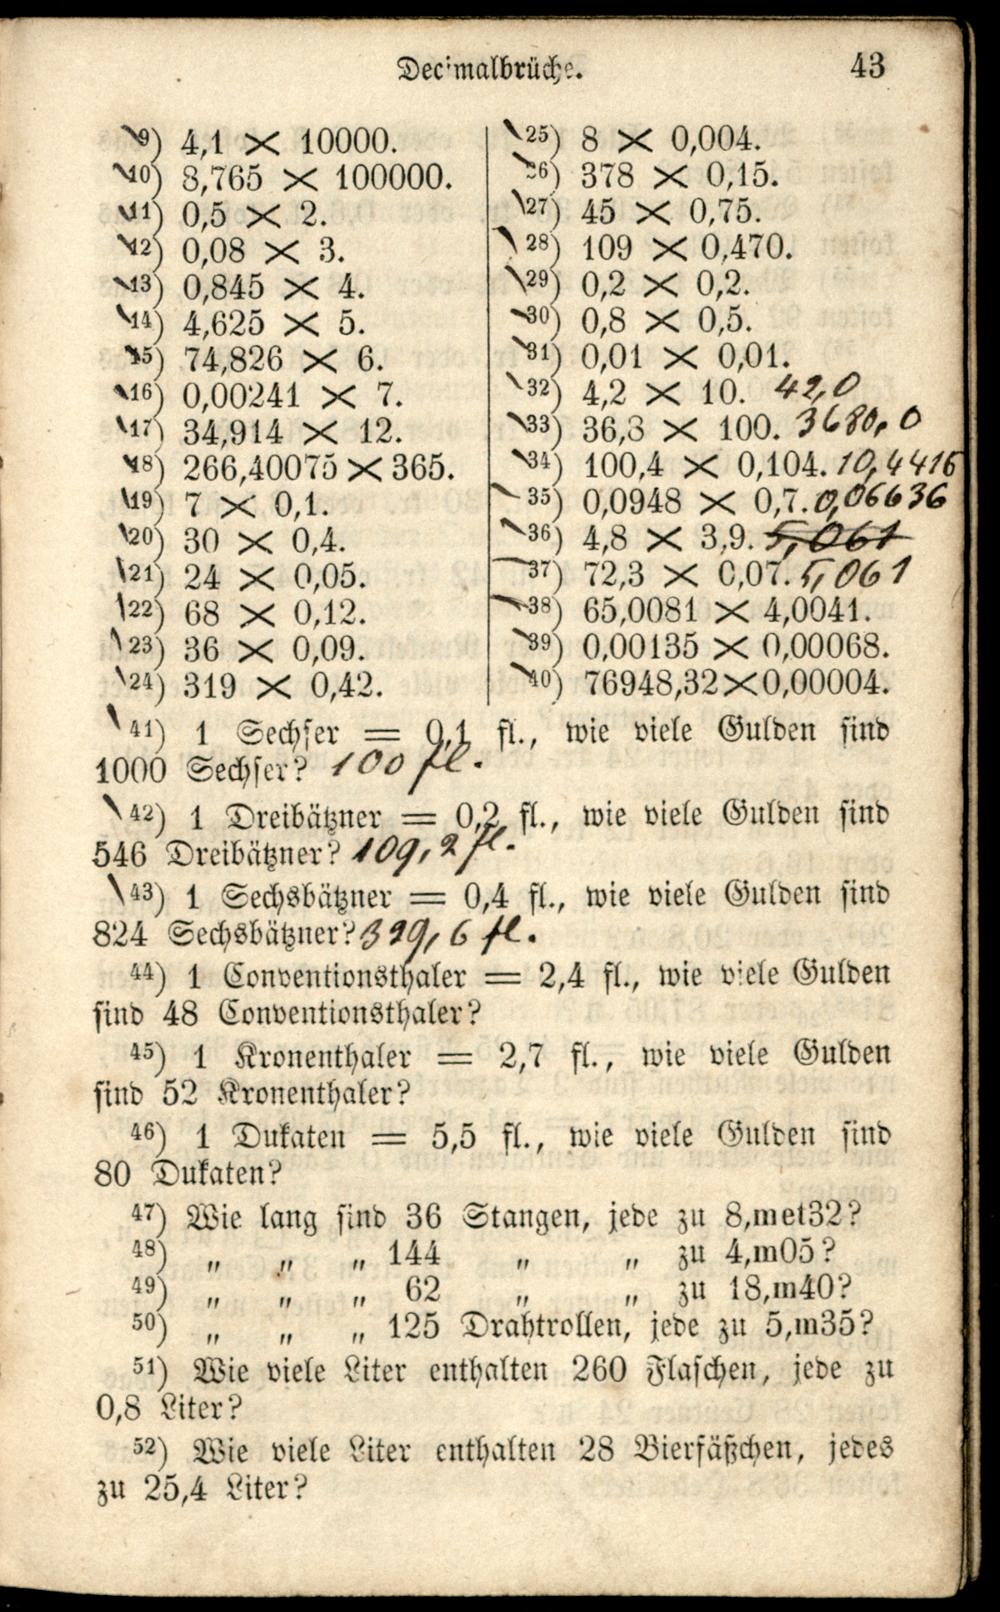 Decimalbrüche. 43
9) 4,1 × 10000.
10) 8,765 × 100000.
11) 0,5 × 2.
12) 0,08 × 3.
13) 0,845 × 4.
14) 4,625 × 5.
15) 74,826 × 6.
16) 0,00241 × 7.
17) 34,914 × 12.
18) 266,40075 × 365.
19) 7 × 0,1.
20) 30 × 0,4.
21) 24 × 0,05.
22) 68 × 0,12.
23) 36 × 0,09.
24) 319 × 0,42.
25) 8 × 0,004.
26) 378 × 0,15.
27) 45 × 0,75.
28) 109 × 0,470.
29) 0,2 × 0,2.
30) 0,8 × 0,5.
31) 0,01 × 0,01.
32) 4,2 × 10. 42,0
33) 36,8 × 100. 3680,0
34) 100,4 × 0,104. 10,4416
35) 0,0948 × 0,7. 0,06636
36) 4,8 × 3,9. 5,061
37) 72,3 × 0,07. 5,061
38) 65,0081 × 4,0041.
39) 0,00135 × 0,00068.
40) 76948,32 × 0,00004.
41) 1 Sechser = 0,1 fl., wie viele Gulden sind
1000 Sechser? 100 fl.
42) 1 Dreibätzner = 0,2 fl., wie viele Gulden sind
546 Dreibätzner? 109,2 fl.
43) 1 Sechsbätzner = 0,4 fl., wie viele Gulden sind
824 Sechsbätzner? 329,6 fl.
44) 1 Conventionsthaler = 2,4 fl., wie viele Gulden
sind 48 Conventionsthaler?
45) 1 Kronenthaler = 2,7 fl., wie viele Gulden
sind 52 Kronenthaler?
46) 1 Dukaten = 5,5 fl., wie viele Gulden sind
80 Dukaten?
47) Wie lang sind 36 Stangen, jede zu 8,met32?
48) „ „ „ 144 „ „ zu 4,m05?
49) „ „ „ 62 „ „ zu 18,m40?
50) „ „ „ 125 Drahtrollen, jede zu 5,m35?
51) Wie viele Liter enthalten 260 Flaschen, jede zu
0,8 Liter?
52) Wie viele Liter enthalten 28 Bierfäßchen, jedes
zu 25,4 Liter?